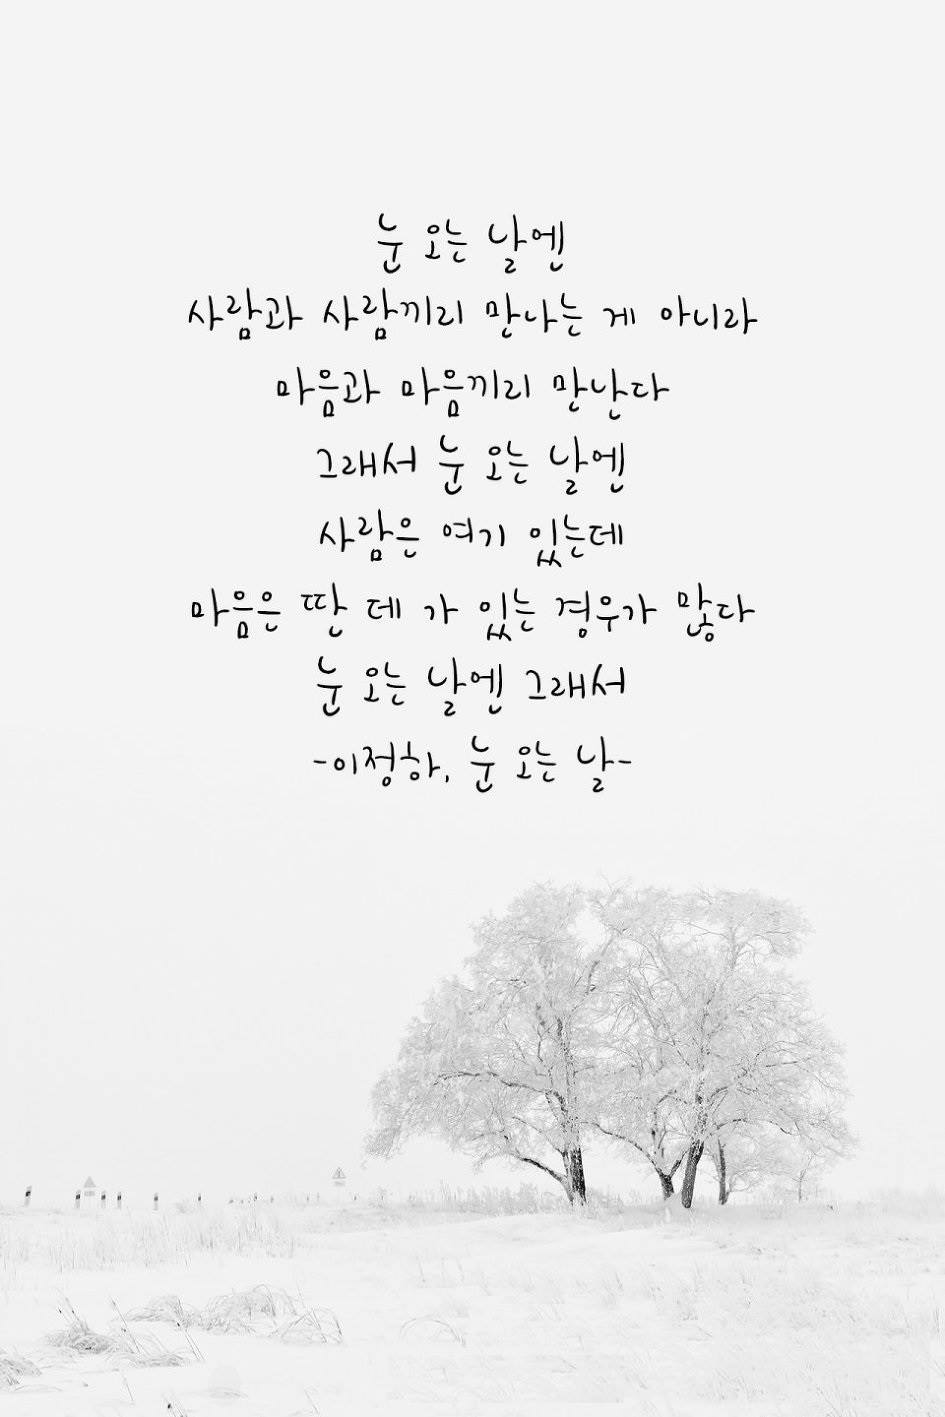 눈 오는 날엔
사람과 사람끼리 만나는 게 아니라
마음과 마음끼리 만난다
그래서 눈 오는 날엔
사람은 여기 있는데
마음은 딴 데 가 있는 경우가 많다
눈 오는 날엔 그래서
-이정하, 눈 오는 날-